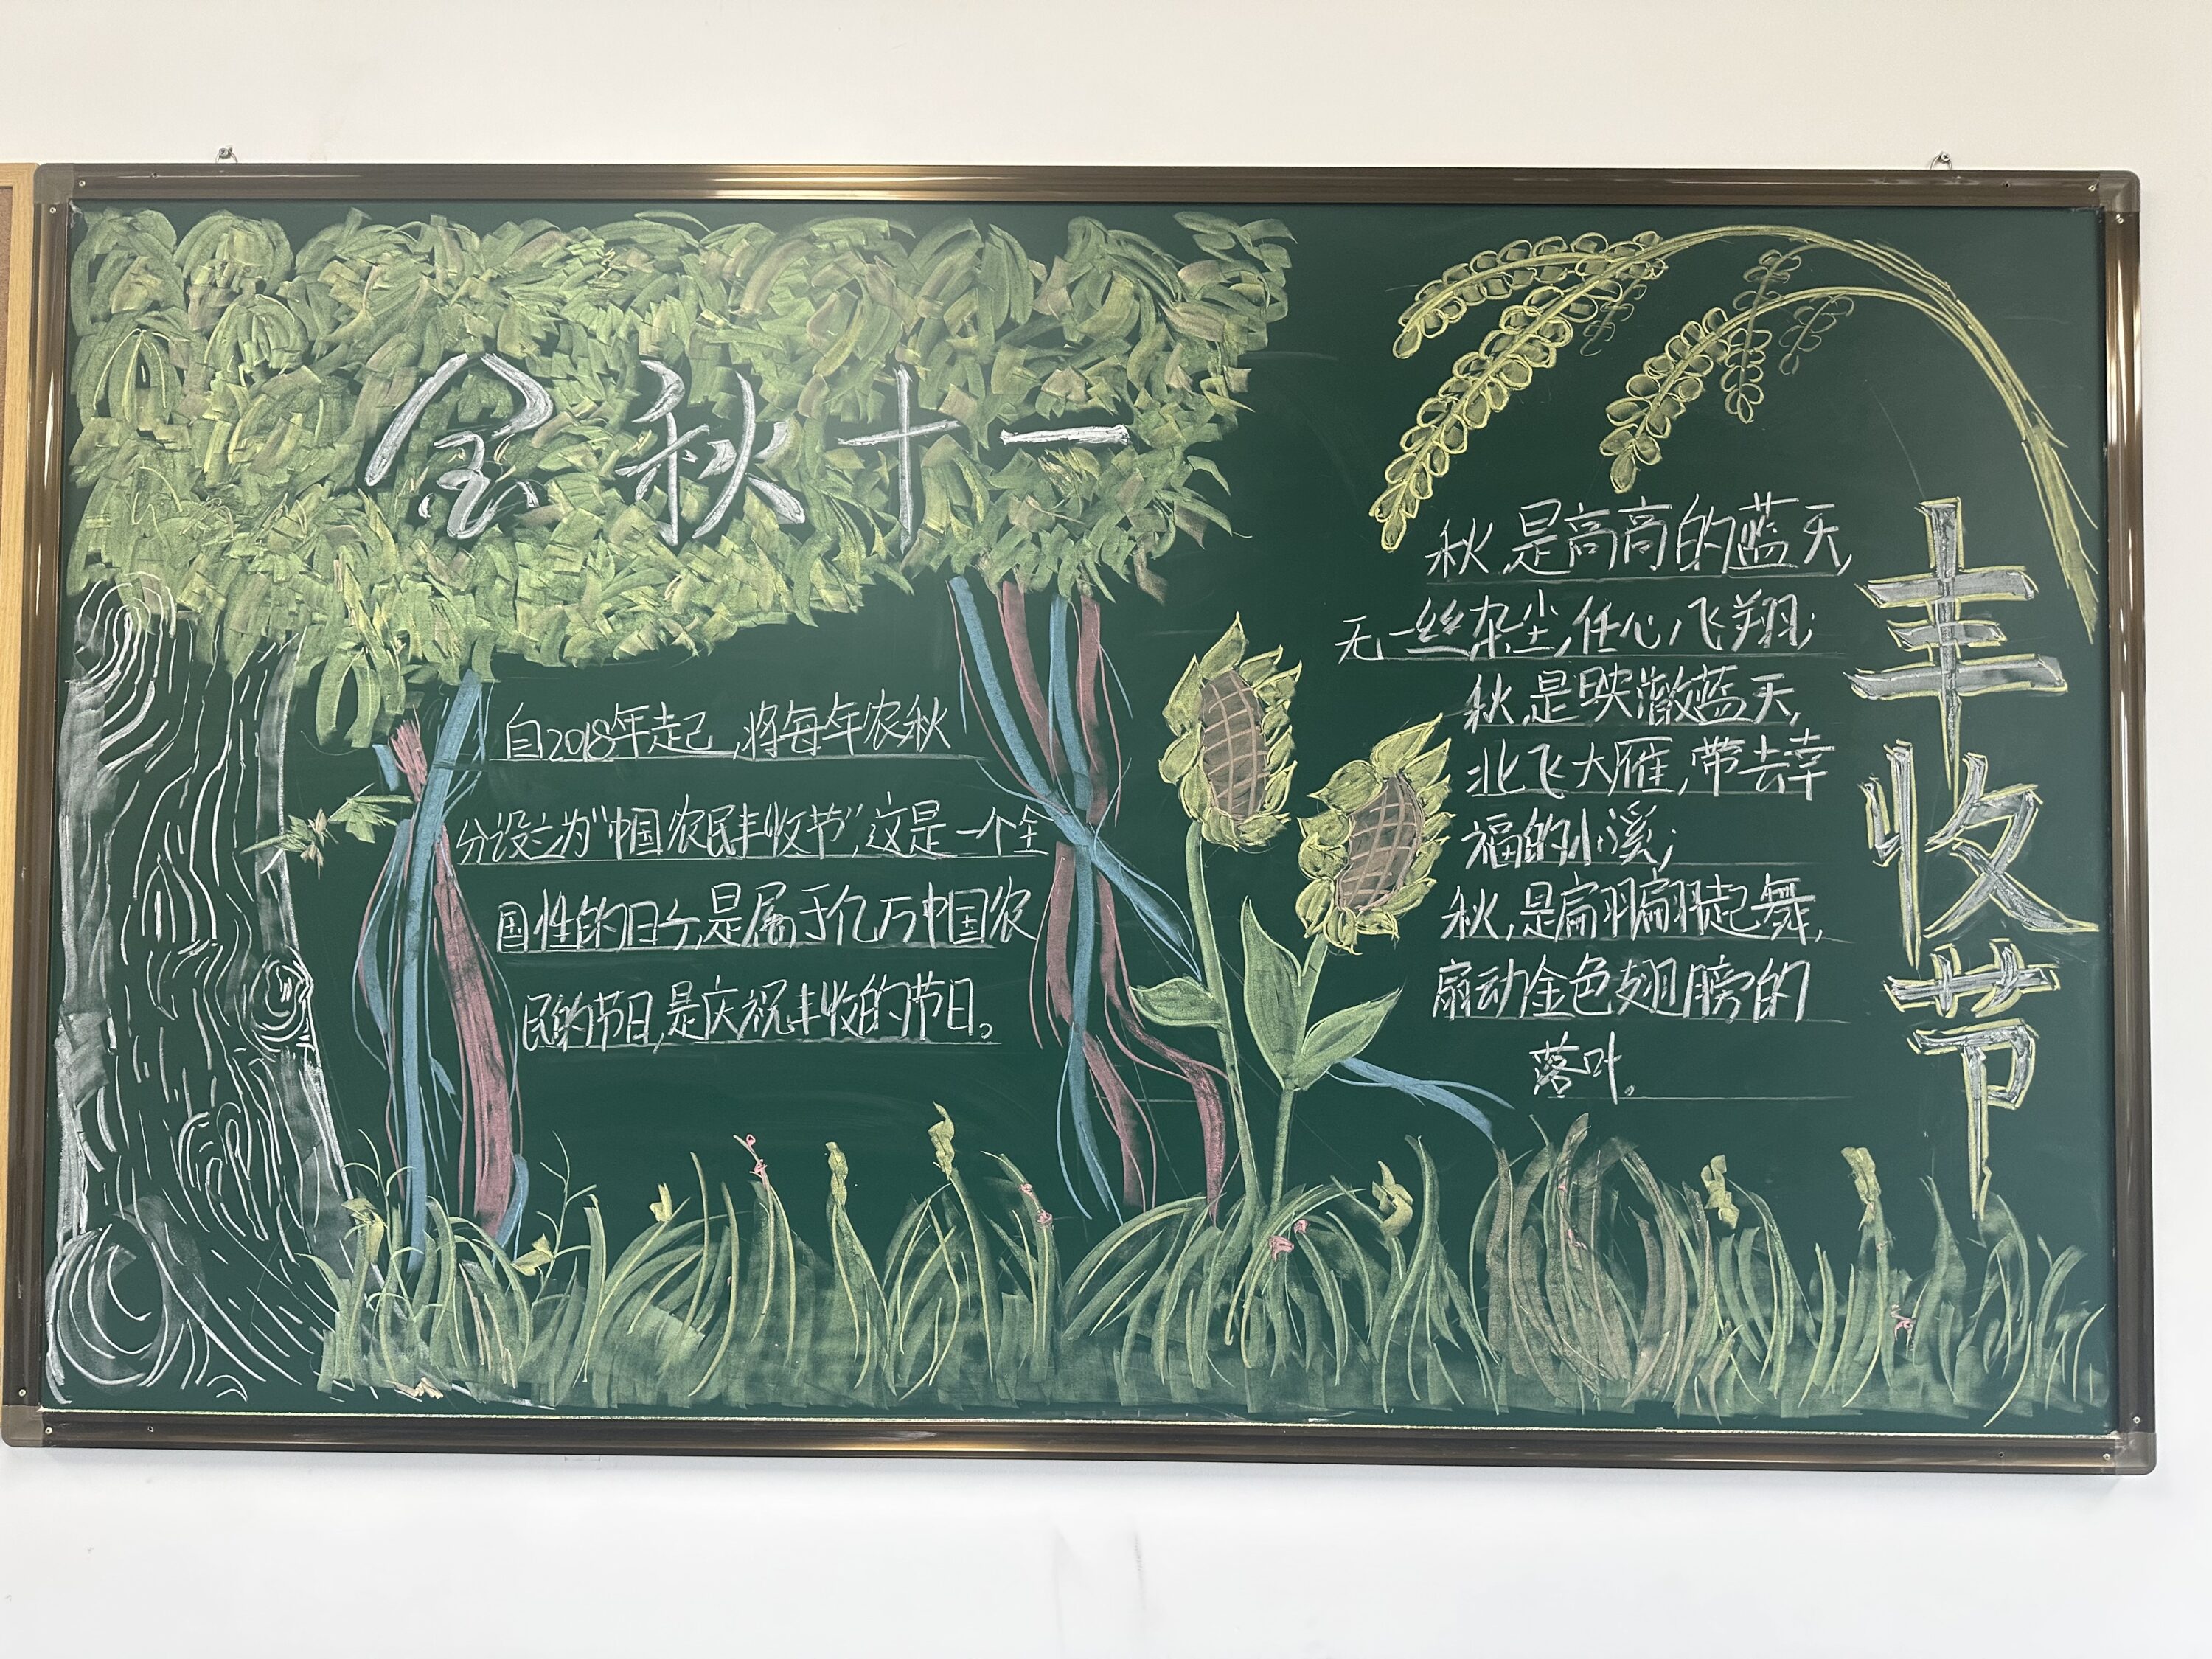 金秋十一
自2018年起,将每年农秋
分设立为"中国农民丰收节",这是一个全
国性的日子,是属于亿万中国农
民的节日,是庆祝丰收的节日。
秋,是高高的蓝天,
无一丝杂尘,任心飞翔;
秋,是映澈蓝天,
北飞大雁,带去幸
福的小溪;
秋,是扁羽扁羽起舞,
扇动金色翅膀的
落叶。
丰收节